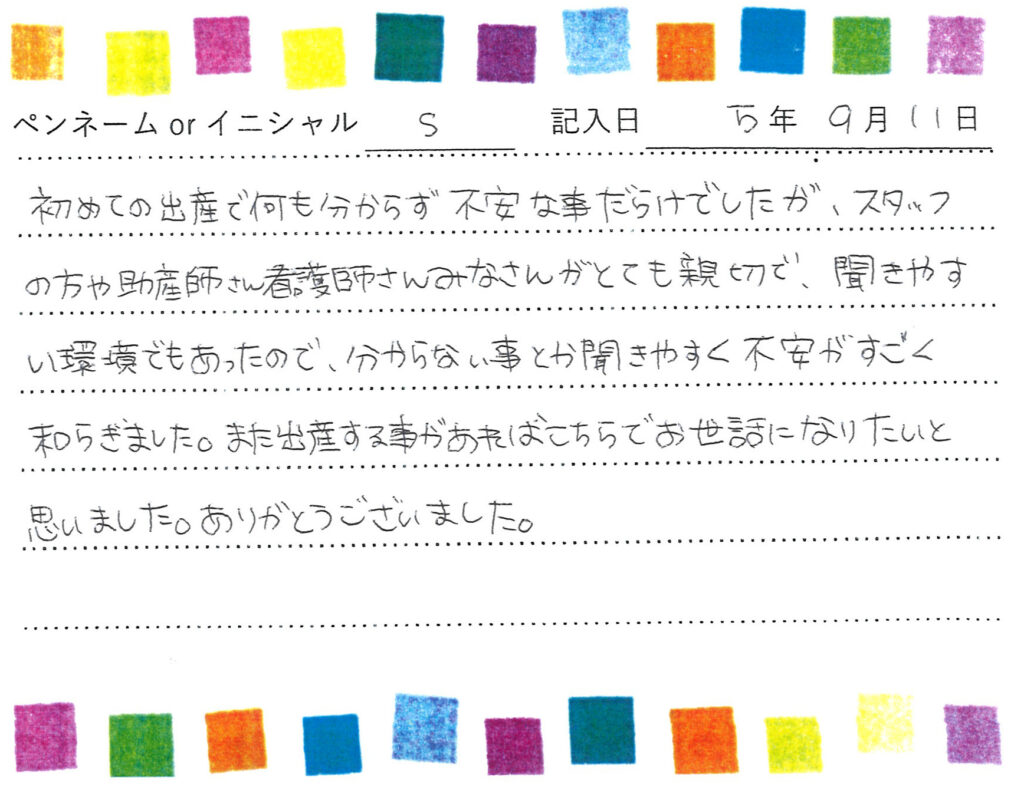 ペンネーム or イニシャル S 記入日 5年 9月 11日
初めての出産で何も分からず不安な事だらけでしたが、スタッフ
の方や助産師さん看護師さんみなさんがとても親切で、聞きやす
い環境でもあったので、分からない事とか聞きやすく不安がすごく
和らぎました。また出産する事があればこちらでお世話になりたいと
思いました。ありがとうございました。